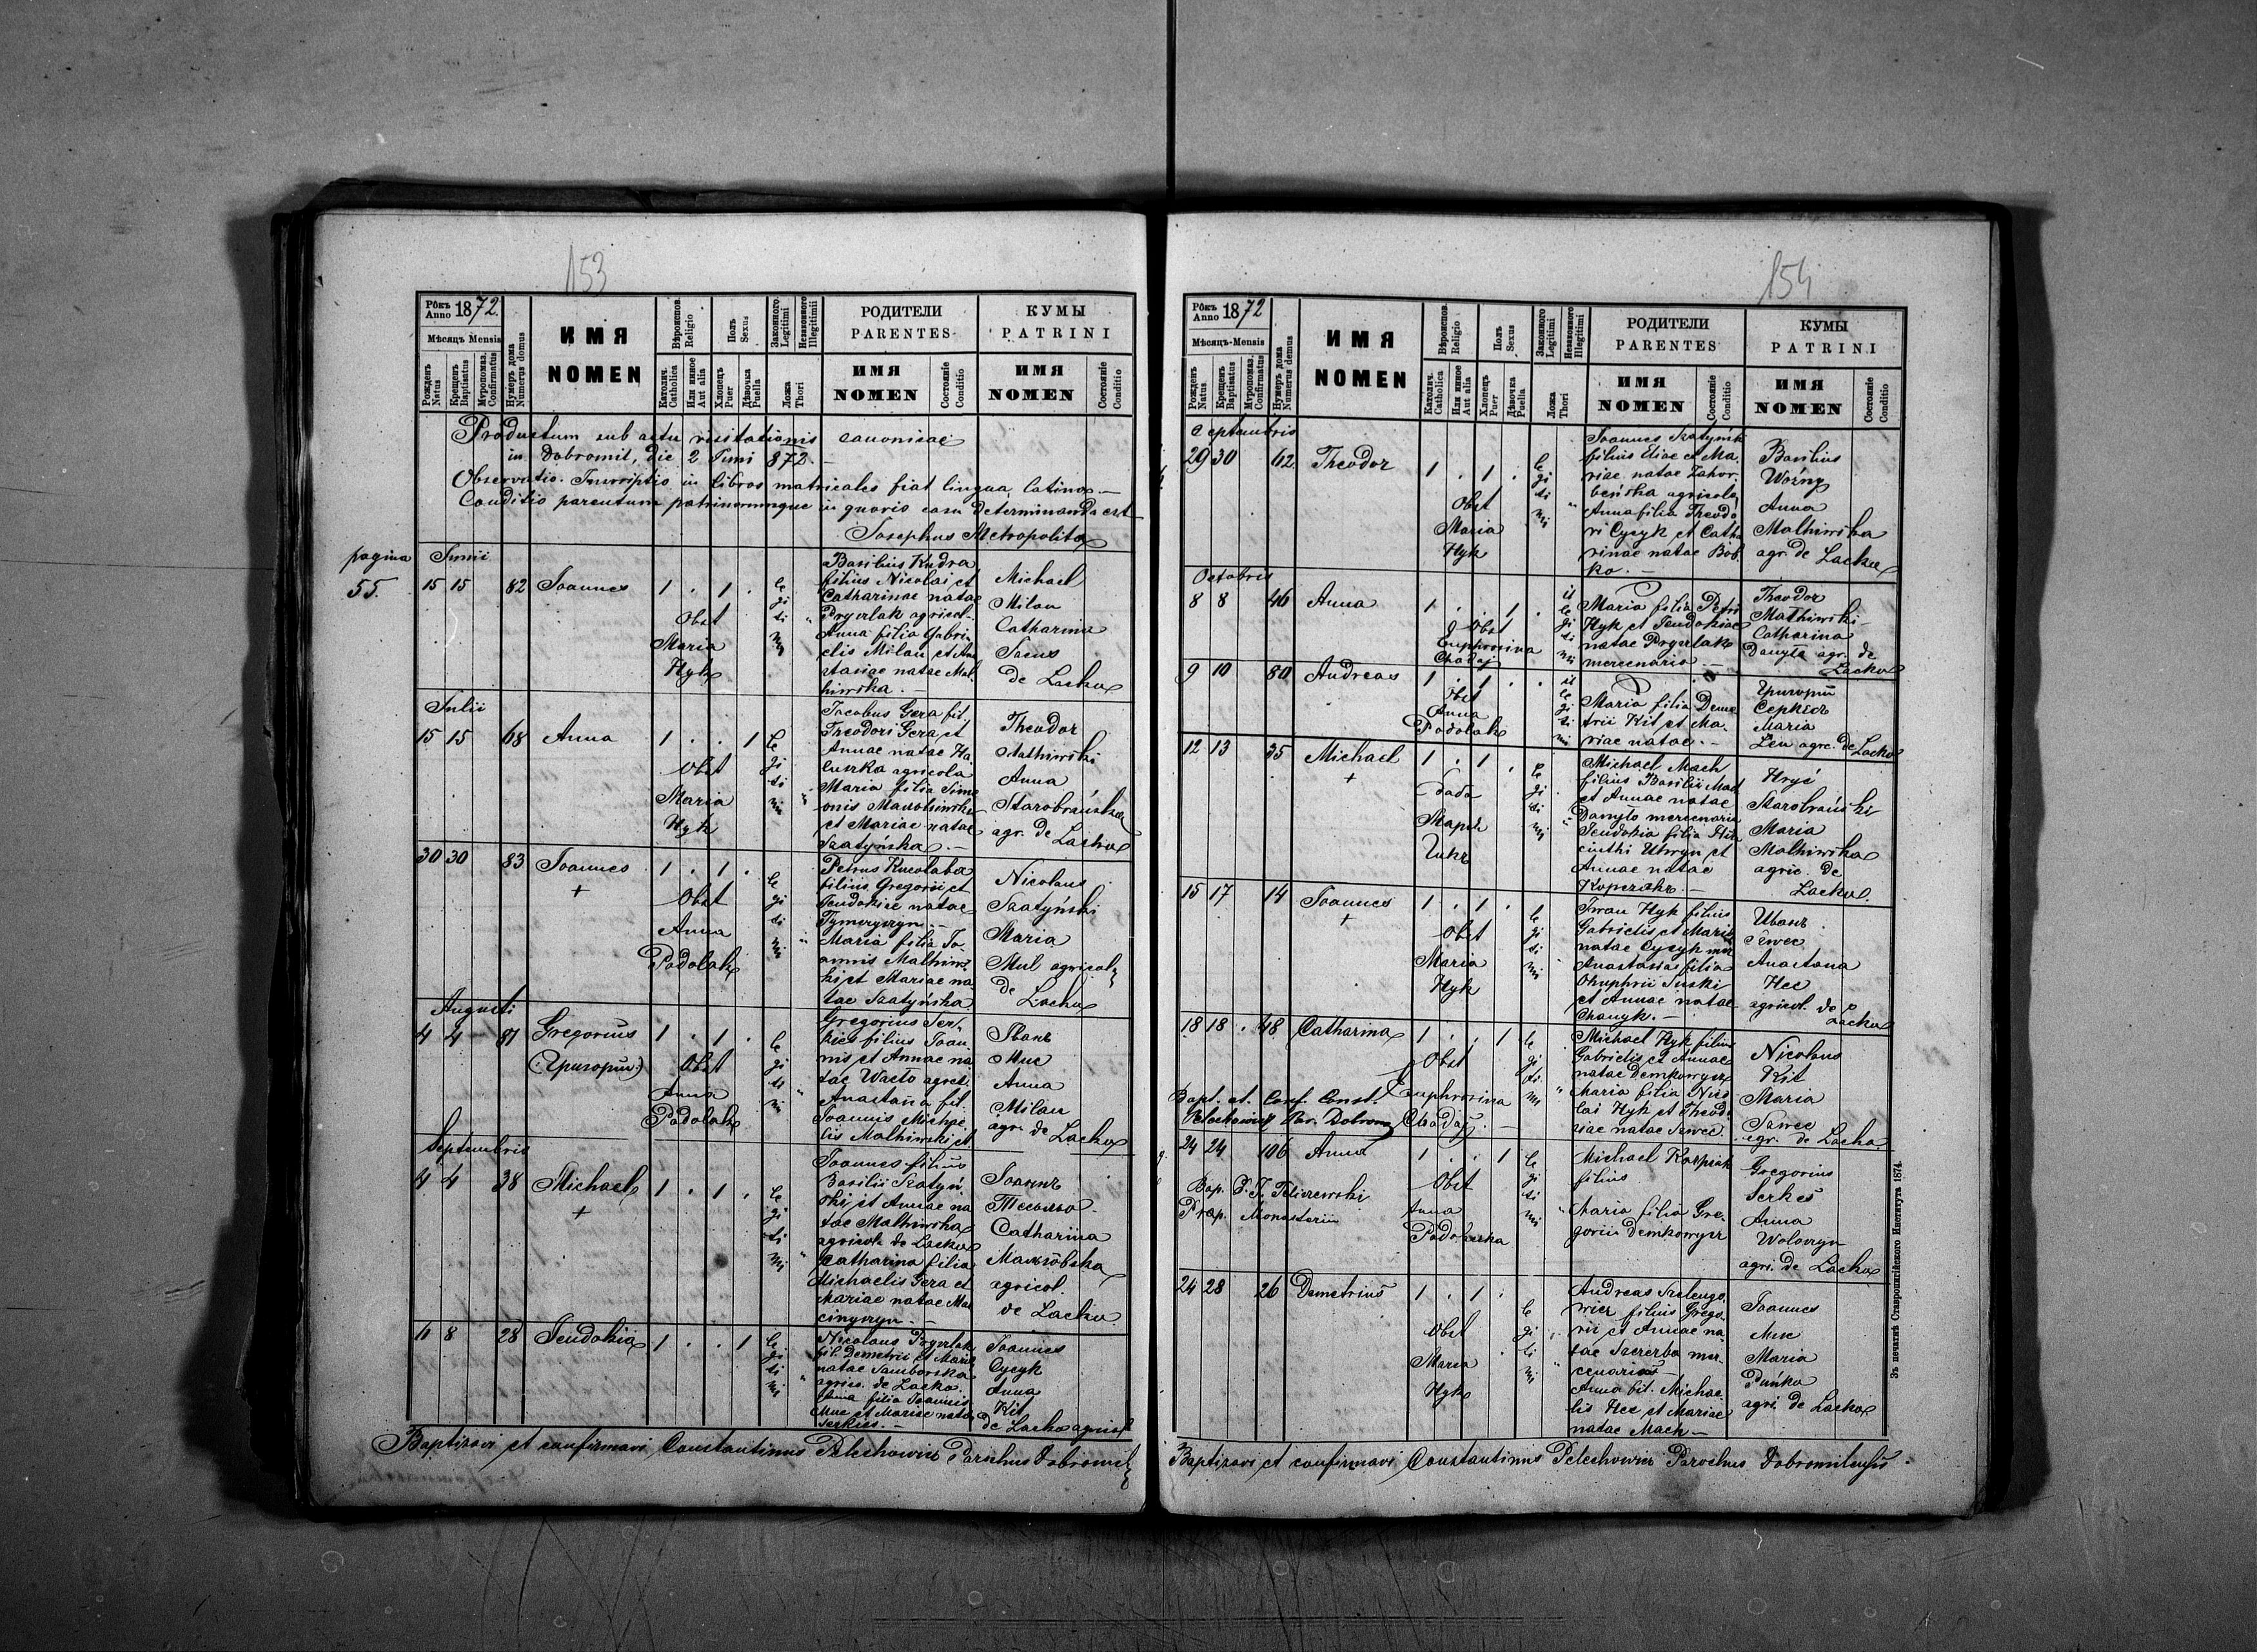 153
Рôкъ Anno 1872.
Мѣсяцъ Mensis
Рожденъ Natus
Крещенъ Baptisatus
Муропомаз. Confirmatus
Нумеръ дома Numerus domus
ИМЯ
NOMEN
Вѣроиспов. Religio
Католич. Catholica
Или инное Aut alia
Полъ Sexus
Хлопецъ Puer
Дѣвочка Puella
Законного Legitimi
Незаконного Illegitimi
Ложа Thori
РОДИТЕЛИ
PARENTES
ИМЯ
NOMEN
Состояніе Conditio
КУМЫ
PATRINI
ИМЯ
NOMEN
Состояніе Conditio
Productum sub actu visitationis canonicae
in Dobromil, die 2 Junii 872.
Observatio. Inscriptio in libros matricales fiat lingua latina —
Conditio parentum patrinorumque in quovis casu determinanda est
Josephus Metropolita
pagina
55.
Junii
15 15 82 Joannes 1 . 1 .
Obst
Maria
Hyk
le
gi
ti
mi
Basilius Kudra
filius Nicolai et
Catharinae natae
Prycrlak agricol.
Anna filia Gabri
elis Milan et Ana
stasiae natae Mal
hiwska. —
Michael
Milan
Catharina
de Lacko
Julii
15 15 68 Anna 1 . . 1
Obst
Maria
Hyk
le
gi
ti
mi
Jacobus Gera fil.
Theodori Gera et
Annae natae Ha
agricola
Maria filia Sime
onis
et Mariae natae
Szatyńska. —
Theodor
Malhiwski
Anna
Starobrańska
agr. de Lacko
30 30 83 Joannes 1 . 1 .
+
Obst
Anna
Podolak
le
gi
ti
mi
Petrus
filius Gregorii et
Eudokiae natae
Maria filia Jo
annis Malhiws
ki et Mariae na
tae Szatyńska
Nicolaus
Szatyński
Maria
Mul agricol
de
Lacko
Augusti
4 4 81 Gregorius 1 . 1 .
(Григорій)
Obst
Anna
Podolak
le
gi
ti
mi
Gregorius Ser
kies filius Joan
nis et Annae na
tae agric.
Anastazia fil.
Joannis Michae
lis Malhiwski et
Иванъ
Мис
Anna
Milan
agr. de Lacko
Septembris
4 4 38 Michael 1 . 1 .
+
le
gi
ti
mi
Joannes filius
Basilii Szatyń
ski et Annae na
tae Malhiwska
agricol. de Lacko
Catharina filia
Michaelis Gera et
Mariae natae Mar
cinyszyn —
Catharina
agricol.
de Lacko
6 8 28 Eudokia 1 . . 1
le
gi
ti
mi
Nicolaus Prycrlak
fil. Demetrii et Mariae
natae Samborska
agric. de Lacko.
Anna filia Joannis
Muc et Mariae natae
Serkies. —
Joannes
Cycyk
Anna
Kit
de Lacko agricol
Baptizavi et confirmavi Constantinus Pelechowicz Parochus Dobromil
154
Рôкъ Anno 1872
Мѣсяцъ-Mensis
Рожденъ Natus
Крещенъ Baptisatus
Муропомаз. Confirmatus
Нумеръ дома Numerus domus
ИМЯ
NOMEN
Вѣроиспов. Religio
Католич. Catholica
Или инное Aut alia
Полъ Sexus
Хлопецъ Puer
Дѣвочка Puella
Законного Legitimi
Незаконного Illegitimi
Ложа Thori
РОДИТЕЛИ
PARENTES
ИМЯ
NOMEN
Состояніе Conditio
КУМЫ
PATRINI
ИМЯ
NOMEN
Состояніе Conditio
Septembris
29 30 62 Theodor 1 . 1 .
Obst
Maria
Hyk
le
gi
ti
mi
Joannes Szatyńsk
filius Eliae et Ma
riae natae Zahor
beńska agricola
Anna filia Theodo
ri Cycyk et Catha
rinae natae Bob
ko. —
Basilius
Woźny
Anna
Malhiwska
agr. de Lacko
Octobris
8 8 46 Anna 1 . . 1
Obst
Euphrosina
Chodaj
il
le
gi
ti
mi
Maria filia Petri
Hyk et Eudokiae
natae Prycrlak
mercenaria —
Theodor
Malhiwski
Catharina
Danyla agr. de
Lacko
9 10 80 Andreas 1 . 1 .
Obst
Anna
Podolak
il
le
gi
ti
mi
Maria filia Deme
trii Kit et Ma
riae natae. —
Григорій
Серкѣсъ
Maria
Len agr. de Lacko
12 13 35 Michael 1 . 1 .
+
Баба
Марія
Гикъ
le
gi
ti
mi
Michael Mach
filius Basilii Mach
et Annae natae
Danyło mercenarii
Eudokia filia Hia
cinthi et
Annae natae
Hryć
Starobrański
Maria
Malhiwska
agric. de
Lacko.
15 17 14 Joannes 1 . 1 .
+
Obst
Maria
Hyk
le
gi
ti
mi
Iwan Hyk filius
Gabrielis et Mariae
natae Cycyk mer
Anastasia filia
Onuphrii Suski
et Annae natae
Иванъ
Szwec
Anastazia
Hec
agricol. de
Lacko
18 18 . 48 Catharina 1 . . 1
Obst
Euphrosina
Chodaj. —
le
gi
ti
mi
Michael Hyk filius
Gabrielis et Annae
natae Demkowycz
Maria filia Nico
lai Hyk et Theodo
siae natae Szwec.
Nicolaus
Kit
Maria
Szwec
agr. de Lacko
Bapt. et Conf. Const.
Pelechowicz Par. Dobrom
24 24 106 Anna 1 . . 1
Obst
Anna
Podolczka
le
gi
ti
mi
Michael Karpiak
filius
Maria filia Gre
gorii Demkowycz
Gregorius
Serkes
Anna
Woloszyn
agri. de Lacko
Bap. P. J. Teliszewski
Prap. Monasterii
24 28 26 Demetrius 1 . 1 .
Obst
Maria
Hyk
le
gi
ti
mi
Andreas Szelengo
wicz filius Grego
rii et Annae na
tae Szczerba mer
cenarius —
Anna fil. Michae
lis Hec et Mariae
natae Mach —
Joannes
Мис
Maria
Duńko
agri. de Lacko
Baptizavi et confirmavi Constantinus Pelechowicz Parochus Dobromilensis
Зъ печатнѣ Ставропигійского Института 1874.